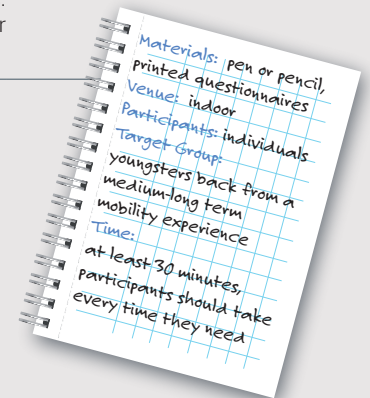 .
r
Materials: pen or pencil,
printed questionnaires
Venue: indoor
Participants: individuals
Target Group:
youngsters back from a
medium-long term
mobility experience
Time:
at least 30 minutes,
participants should take
every time they need